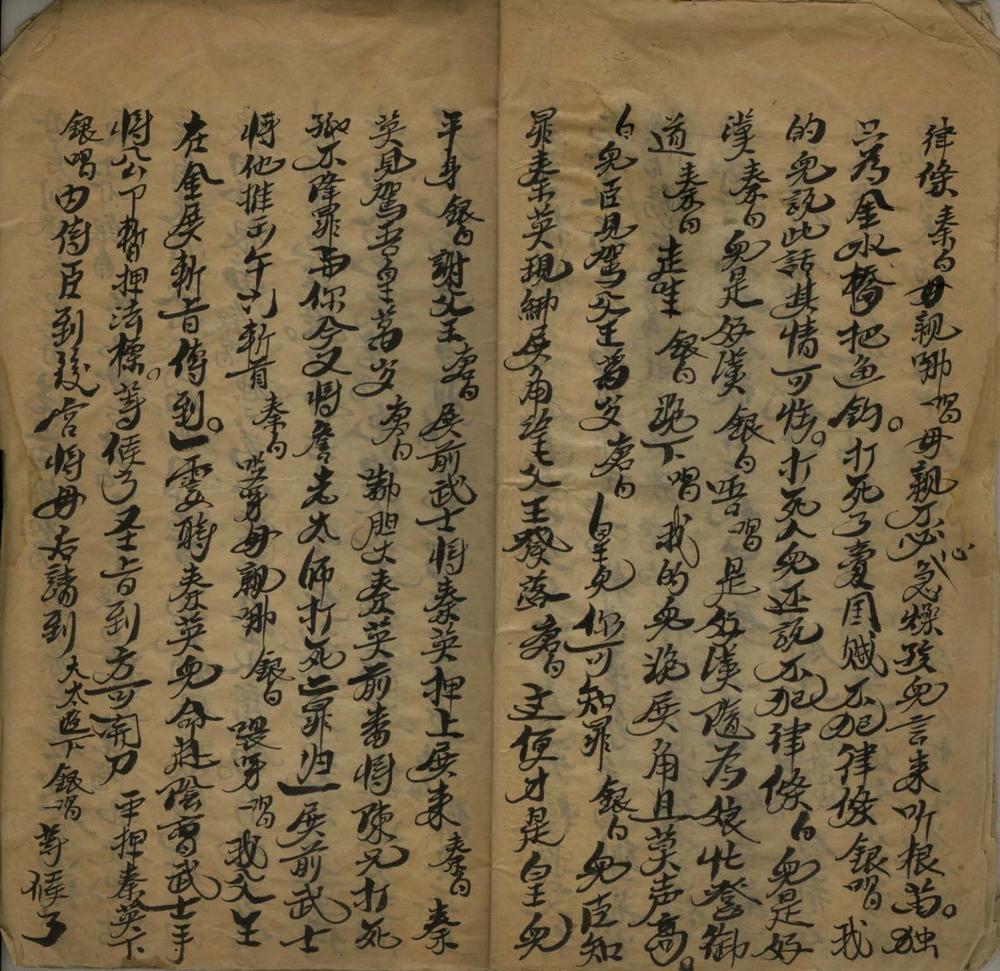 律條 秦白 母親𠲔 唱 母親不必心急燥孩兒言來听根苗。独
只為金水橋把魚釣。打死了賣国賊不犯律條 銀唱 我
的兒說此話其情可惱。打死人兒还説不犯律條 白 兒是好
漢 秦白 兒是好漢 銀白 唔 唱 是好漢隨為娘忙登御
道 秦白 走哇 銀白 跪下 唱 我的兒跪展角且莫声高。
白 兒臣見駕父王萬岁 唐白 皇兒你可知罪 銀白 兒臣知
罪秦英現綁展角望父王發落 唐白 这便才是皇兒
平身 銀白 謝父王 唐白 展前武士將秦英押上展来 秦白 秦
英見駕吾皇萬岁 唐白 嘟胆大秦英前番將陳元打死
孤不降罪而你今又將詹老太師打死二罪归一展前武士
將他推出午门斬首 秦白 哎呀母親𠲔 銀白 喂呀 唱 我父王
在金展斬旨傳到。一霎時秦英兒命赴陰曹武士手
將公
銀唱 内侍臣到後宮將母后請到 大太監下 銀唱 等候了